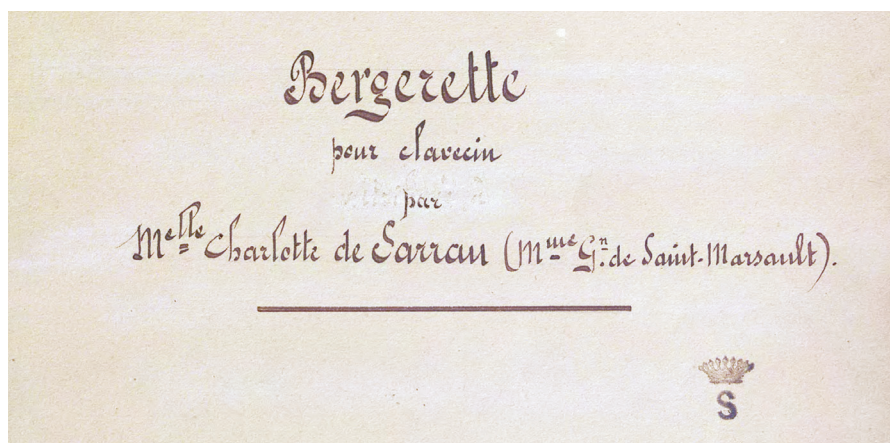 Bergerette
pour clavecin
par
Melle Charlotte de Sarrau (Mme Gn. de Saint-Marsault).
S